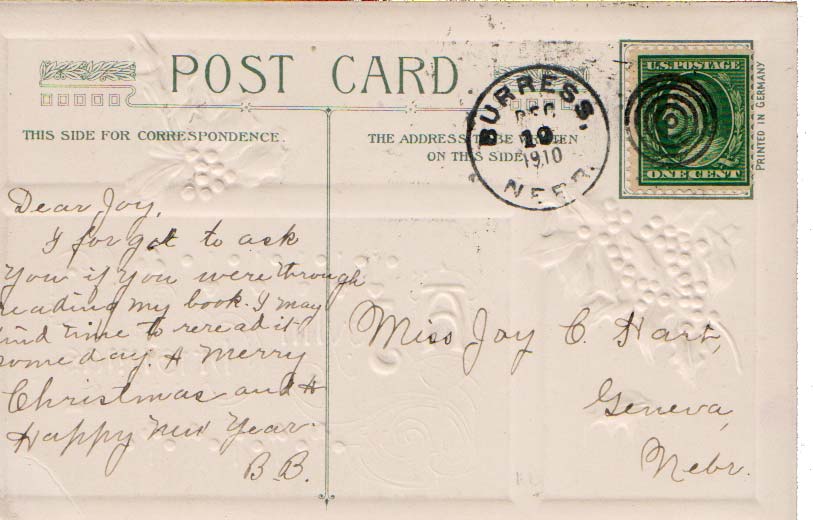 POST CARD
THIS SIDE FOR CORRESPONDENCE
THE ADDRESS TO BE WRITTEN
ON THIS SIDE
BURRESS,
DEC
19
1910
NEBR.
U.S. POSTAGE
ONE CENT
PRINTED IN GERMANY
Dear Joy,
I forgot to ask
you if you were through
reading my book. I may
find time to reread it
some day. A Merry
Christmas and A
Happy New Year.
B.B.
Miss Joy C. Hart,
Geneva,
Nebr.